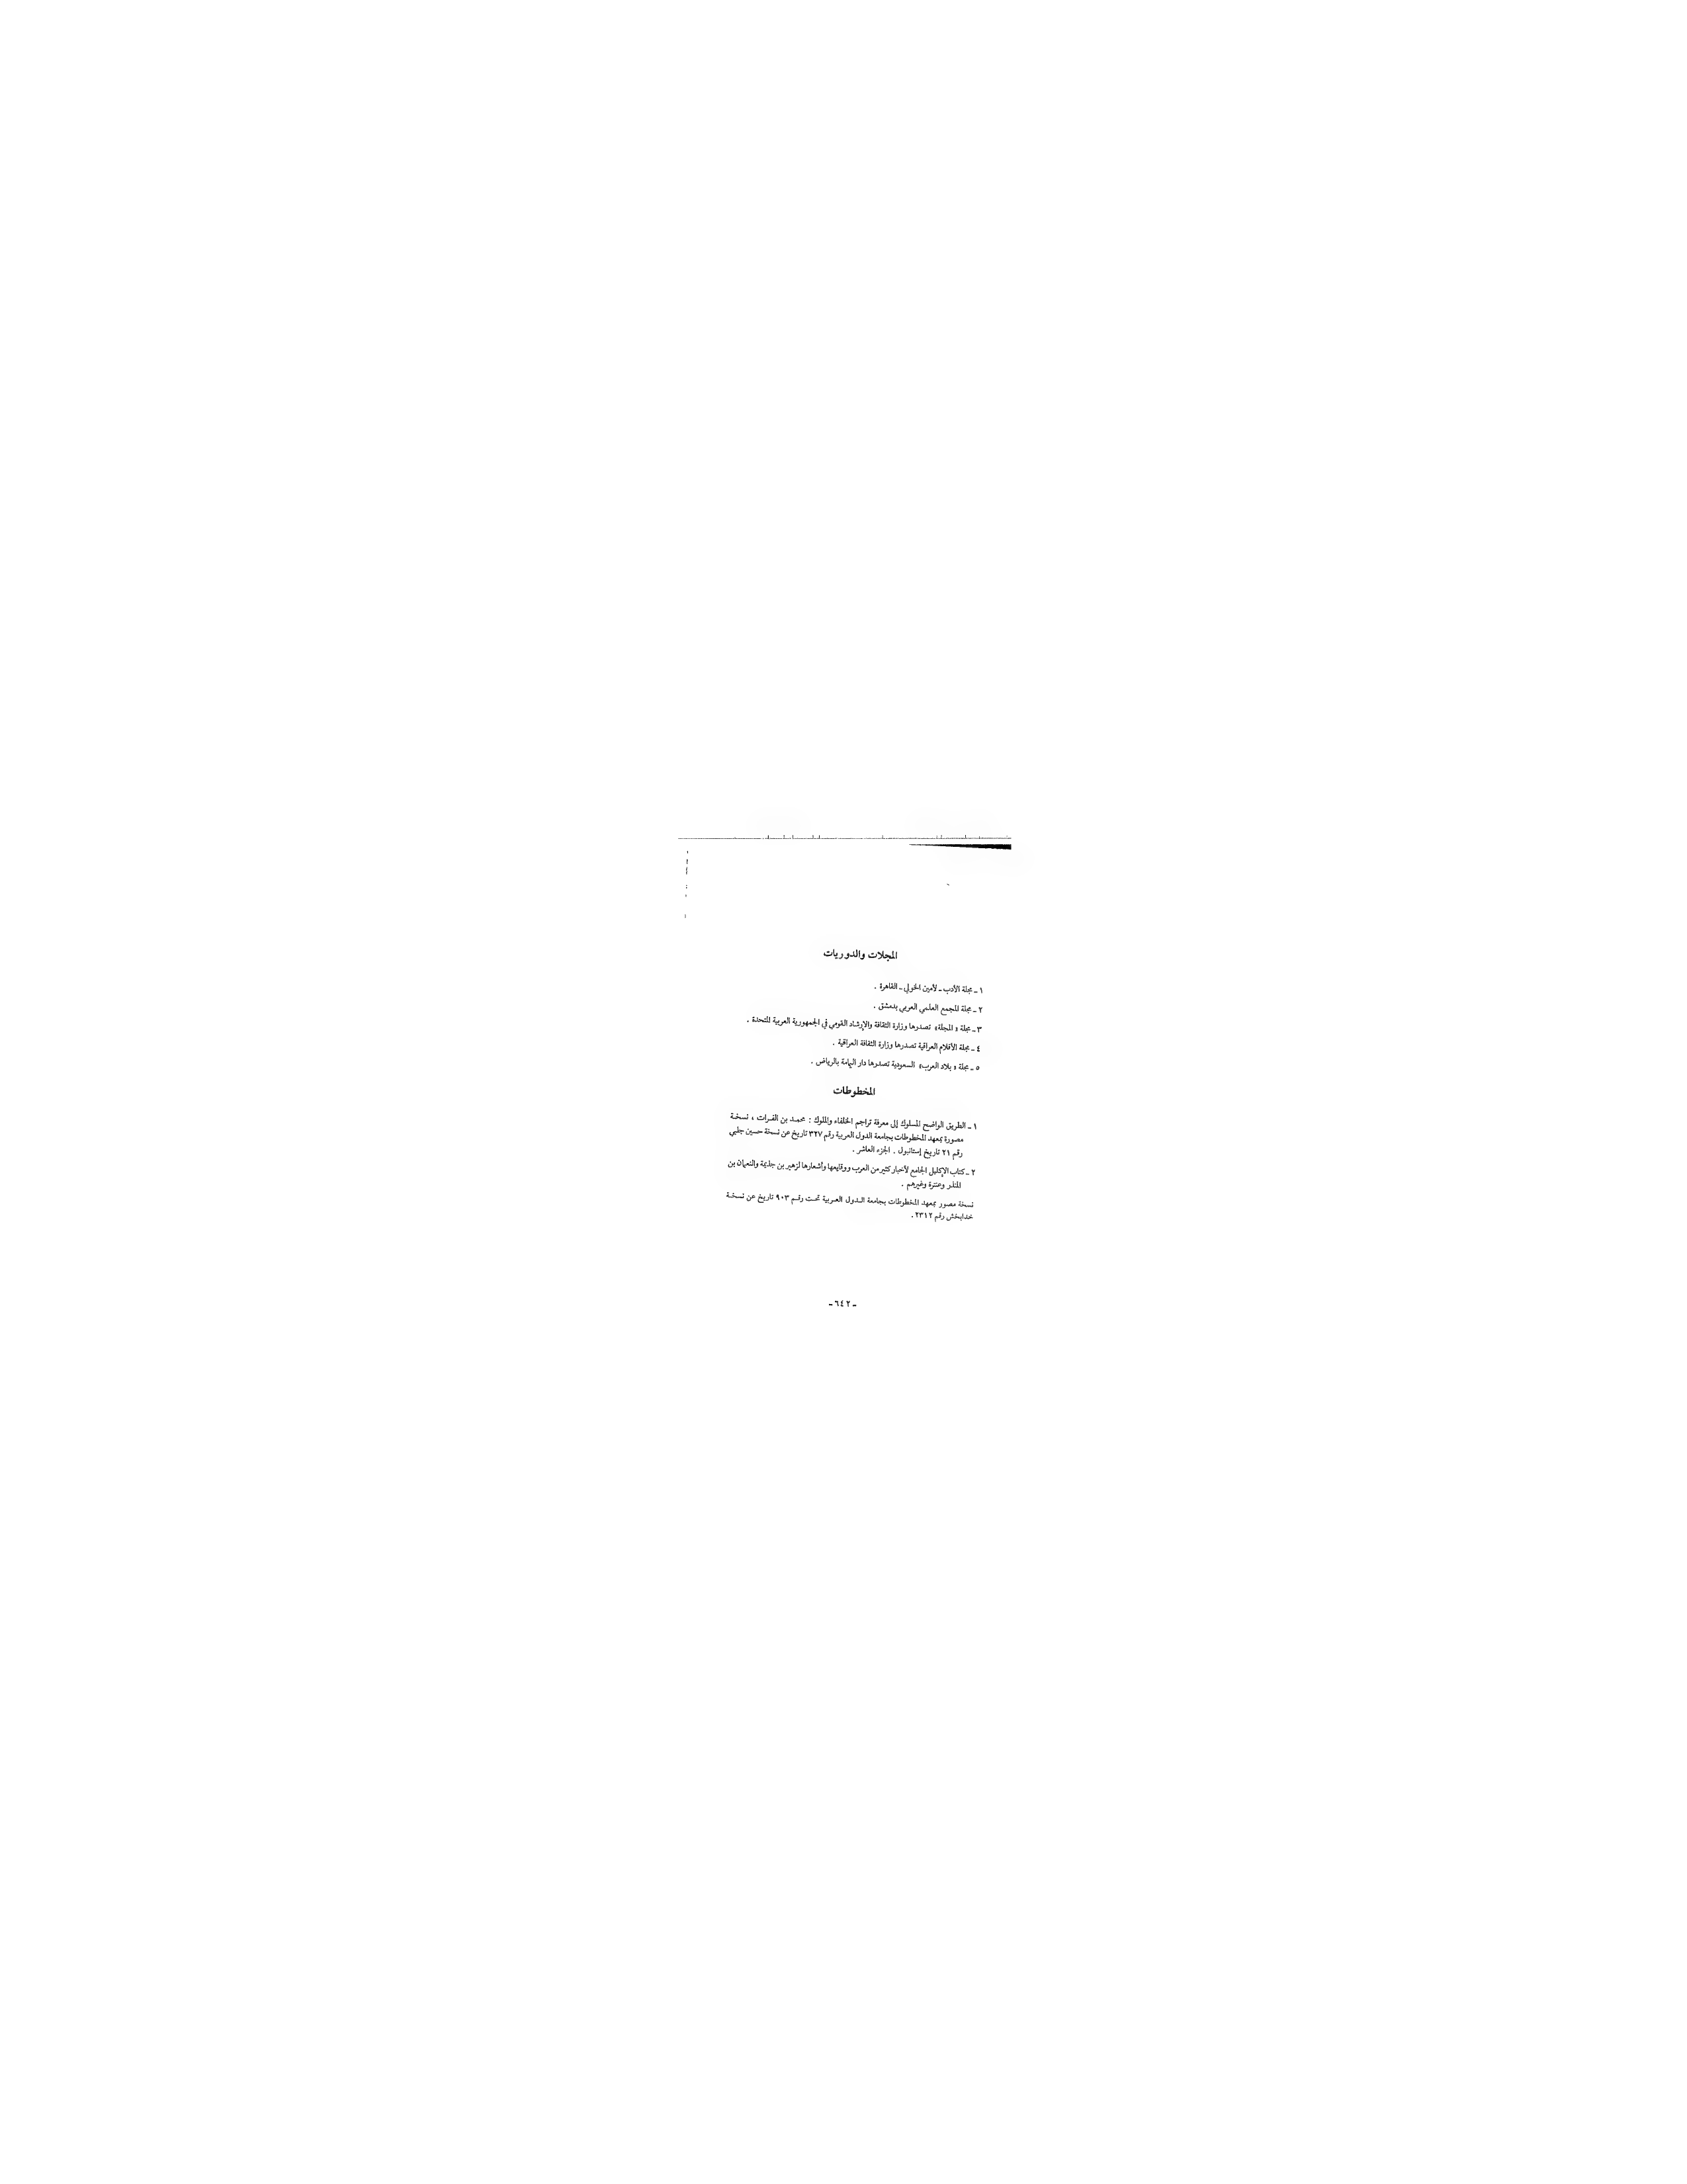 المجلات والدوريات
١ ـ مجلة الأدب ـ لأمين الخولي ـ القاهرة .
٢ ـ مجلة المجمع العلمي العربي بدمشق .
٣ ـ مجلة « المجلة » تصدرها وزارة الثقافة والإرشاد القومي في الجمهورية العربية المتحدة .
٤ ـ مجلة الأقلام العراقية تصدرها وزارة الثقافة العراقية .
٥ ـ مجلة « بلاد العرب » السعودية تصدرها دار اليمامة بالرياض .
المخطوطات
١ ـ الطريق الواضح المسلوك إلى معرفة تراجم الخلفاء والملوك : محمد بن الفرات ، نسخة
مصورة بمعهد المخطوطات بجامعة الدول العربية رقم ٣٢٧ تاريخ عن نسخة حسين جلبي
رقم ٢١ تاريخ إستانبول . الجزء العاشر .
٢ ـ كتاب الإكليل الجامع لأخبار كثير من العرب ووقايعها وأشعارها لزهير بن جذيمة والنعمان بن
المنذر وعنترة وغيرهم .
نسخة مصور بمعهد المخطوطات بجامعة الدول العربية تحت رقم ٩٠٣ تاريخ عن نسخة
خدابخش رقم ٢٣١٢ .
ـ ٦٤٢ ـ